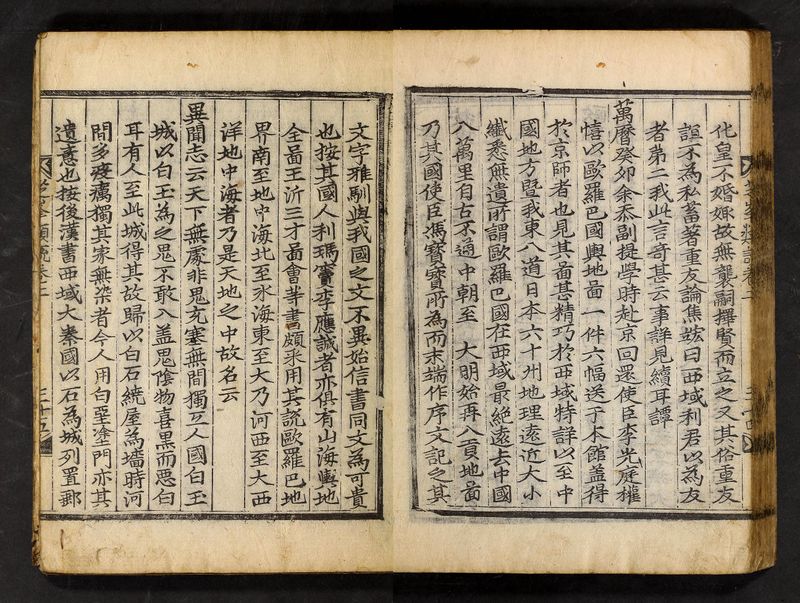 芝峯類說卷二
化皇不婚嫁故無襲嗣擇賢而立之又其俗重友
誼不為私蓄著重友論焦竑曰西域利君以為友
者第二我此言奇甚云事詳見續耳譚
萬曆癸卯余忝副提學時赴京回還使臣李光庭權
憘以歐羅巴國輿地圖一件六幅送于本館蓋得
於京師者也見其圖甚精巧於西域特詳以至中
國地方曁我東八道日本六十州地理遠近大小
纖悉無遺所謂歐羅巴國在西域最絕遠去中國
八萬里自古不通中朝至 大明始再入貢地圖
乃其國使臣馮寶寶所為而末端作序文記之其
文字雅馴與我國之文不異始信書同文為可貴
也按其國人利瑪竇李應誠者亦俱有山海輿地
全圖王沂三才圖會等書頗采用其說歐羅巴地
界南至地中海北至氷海東至大乃河西至大西
洋地中海者乃是天地之中故名云
異聞志云天下無處非鬼充塞無間獨亙人國白玉
城以白玉為之鬼不敢入蓋鬼陰物喜黑而惡白
耳有人至此城得其故歸以白石繞屋為墻時河
間多疫癘獨其家無染者今人用白堊塗門亦其
遺意也按後漢書西域大秦國以石為城列置郵
芝峯類說卷二
三十五